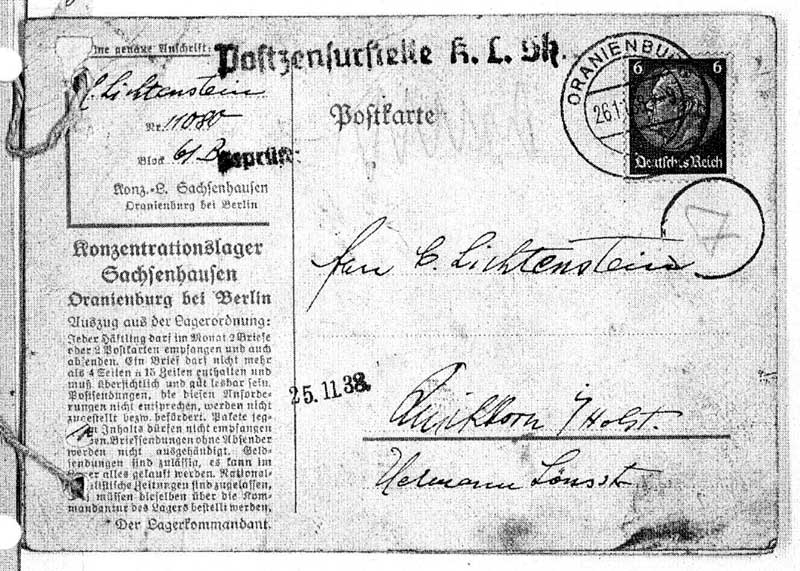 ine genaue Anschrift:
Postzensurstelle K. L. Sh.
C. Lichtenstein
Nr. 11080
Block 61 B
Geprüft
Konz.-L. Sachsenhausen
Oranienburg bei Berlin
Postkarte
ORANIENBU
26.11.38
6 6
Deutsches Reich
Konzentrationslager
Sachsenhausen
Oranienburg bei Berlin
Auszug aus der Lagerordnung:
Jeder Häftling darf im Monat 2 Briefe
oder 2 Postkarten empfangen und auch
absenden. Ein Brief darf nicht mehr
als 4 Seiten à 15 Zeilen enthalten und
muß übersichtlich und gut lesbar sein.
Postsendungen, die diesen Anforde-
rungen nicht entsprechen, werden nicht
zugestellt bezw. befördert. Pakete jeg-
en Inhalts dürfen nicht empfangen
en. Briefsendungen ohne Absender
werden nicht ausgehändigt. Geld-
sendungen sind zulässig, es kann im
er alles gekauft werden. National-
listische Zeitungen sind zugelassen,
müssen dieselben über die Kom-
mandantur des Lagers bestellt werden.
Der Lagerkommandant.
C. Lichtenstein
25.11.38
Quickborn i/Holst.
Hermann Lönsstr.